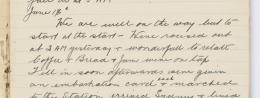 June 18th
We are well on the way but to
start at the start - were roused out
at 3 AM yesterday & wonderful to relate
Coffee & Bread & Jam were on tap
Fell in soon afterwards were given
an embarkation card each & marched
to the Station arrived & lined